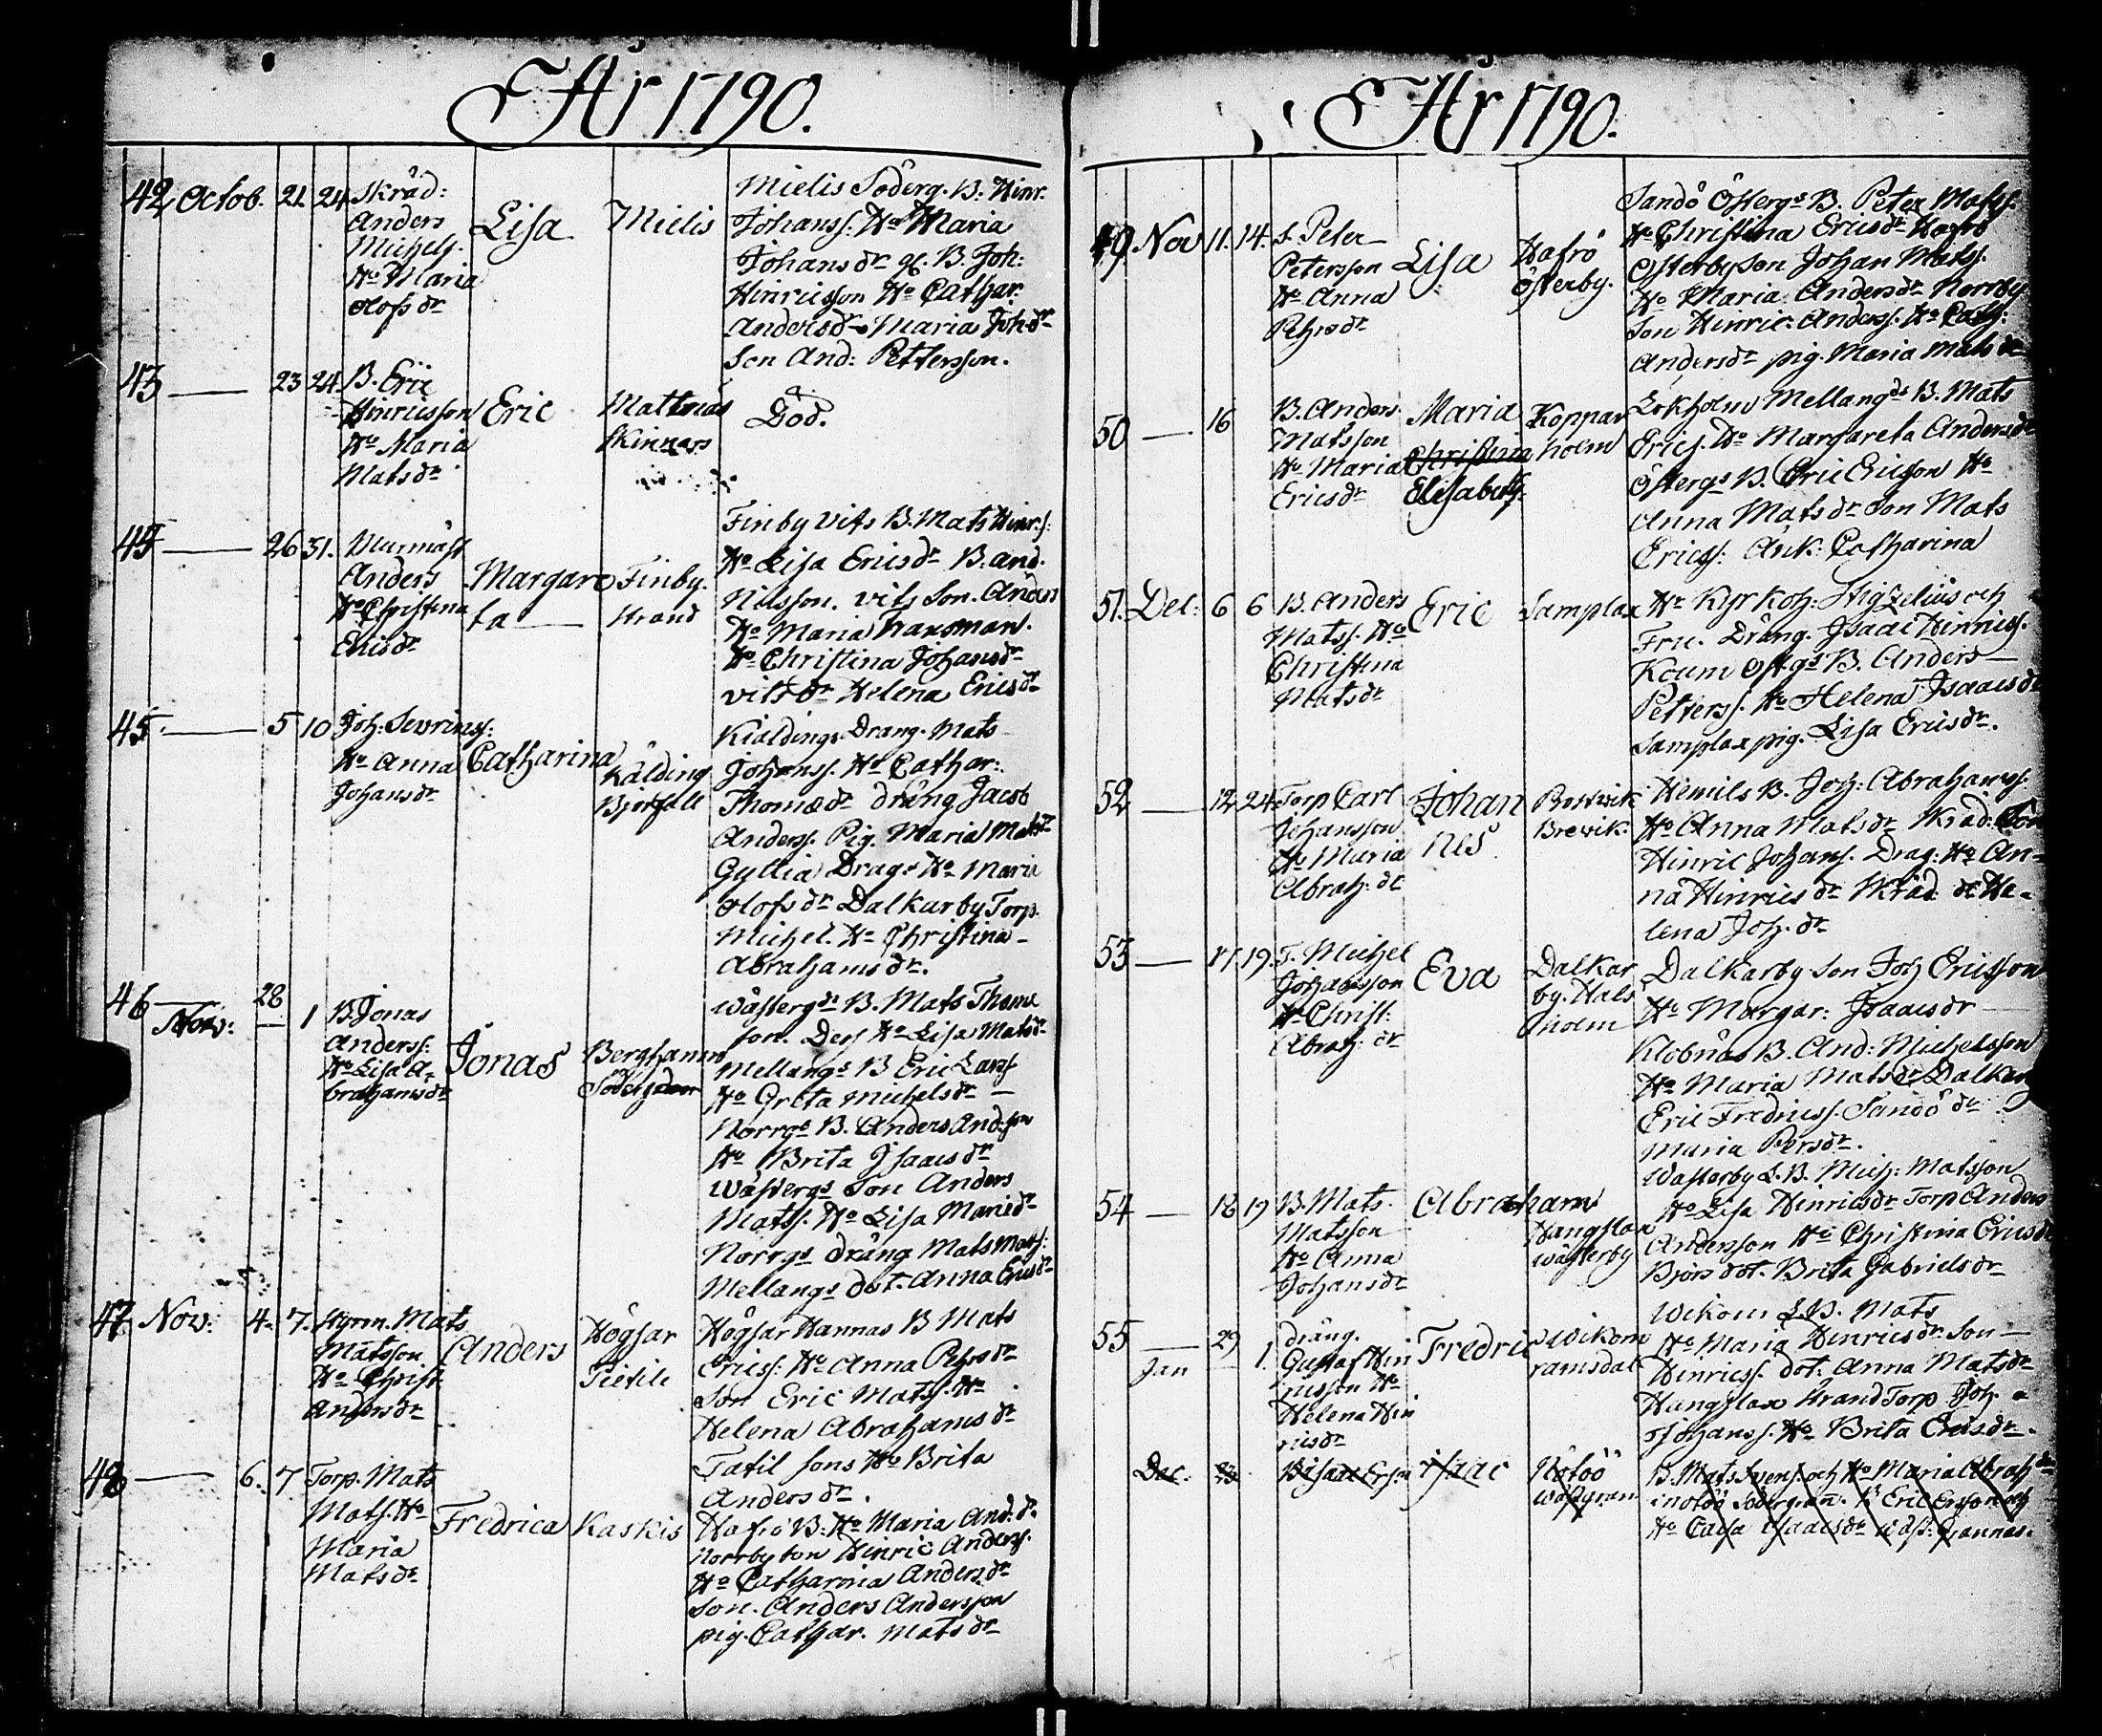 År 1790.
42 Octob. 21. 24 Skräd:
Anders
Michels.
Ho Maria
Olofs dr
Lisa
Mielis
Mielis Söderg. B. Hinr.
Johanss. Ho Maria
Johans dr gl. B. Joh:
Hinricsson Ho Cathar.
Anders dr Maria Joh. dr
Son And: Pettersson.
43 — 23 24 B. Eric
Hinricsson
Ho Maria
Mats dr
Eric
Mattnäs
Skinnars
Död.
44 — 26 31.
Anders
Ho Christina
Erics dr
Margare
ta —
Finby.
Strand
Finby Vits B. Mats Hinrs:
Ho Lisa Erics dr B. And.
Nilsson. Vits Son. Anders
Ho Maria
Ho Christina Johans dr
Vits dr Helena Erics dr
45. — 5 10 Joh: Sevrinss:
Ho Anna
Johans dr
Catharina
Kälding
Björsfall
Kialdinge Dräng. Mats
Johanss. Ho Cathar:
Thomæ dr dräng Jacob
Anderss. Pig. Maria Mats dr
Gyttia Drag. Ho Maria
Olofs dr Dalkarby Torp.
Michel. Ho Christina
Abrahams dr.
46 — 28
Nov: — 1 B. Jonas
Anderss:
Ho Lisa A-
brahams dr
Jonas
Berghamn
Wästergs B. Mats Thoms
son. Dess Ho Lisa Mats dr
Mellangs B Eric Larss
Ho Greta Michels dr —
Norrgs B. Anders Anders
Ho Brita Isaacs dr
Wästergs Son Anders
Matss. Ho Lisa
Norrgs dräng Mats Mats:
Mellangs dot. Anna Erics dr
47 Nov: 4. 7. Hyrm. Mats
Matsson
Ho Christ.
Anders dr
Anders
Högsar
Tietile
Högsar Hannas B Mats
Ericss: Ho Anna Pehrs dr
Son Eric Matss. Ho
Helena Abrahams dr
48 — 6. 7 Torp. Mats
Mats. Ho
Maria
Mats dr
Fredrica
Kaskis
Tatil sons Ho Brita
Anders dr.
Hafrö B: Ho Maria And. dr.
Norrby son Hinric Anderss.
Ho Catharina Anders dr
Son. Anders Andersson
pig. Cathar. Mats dr
År 1790.
49 Nov 11. 14. S. Peter
Petersson
Ho Anna
Pehrs dr
Lisa
Hafrö
Österby.
Sandö Östergs B. Peter Matss.
Ho Christina Erics dr Hafrö
Österby Son Johan Matss.
Ho Maria Anders dr Norrby
Son Hinric Anderss. Ho Cath:
Anders dr pig. Maria Mats dr
50 — 16 B. Anders
Matsson
Ho Maria
Erics dr
Maria
Christina
Elisabeth.
Koppar
holm
Lokholm Mellangds B. Mats
Erics. Ho Margareta Anders dr
Östergs B. Eric Ericsson Ho
Anna Mats dr Son Mats
Ericss: Änk: Catharina
51. Dec: 6 6 B. Anders
Matss. Ho
Christina
Mats dr
Eric
Samplax
Hr Kyrkoh: Stigzelius och
Fru. Dräng. Isaac Hinricss.
Koum Östgs B. Anders —
Petterss. Ho Helena Isaacs dr
Samplax pig. Lisa Erics dr.
52 — 12 24. Torp Carl
Johansson
Ho Maria
Abrah: dr
Johan
nes
Brewik.
Hemils B. Joh: Abrahams:
Ho Anna Mats dr Skräd: Son
Hinric Johans. Drag: Ho An-
na Hinrics dr Skräd dr He-
lena Joh. dr
53 — 17 19. T. Michel
Johansson
Ho Christ:
Abrah: dr
Eva
Dalkar
by. Hals
holm
Dalkarby Son Joh Ericsson
Ho Margar: Isaacs dr —
Klobnäs B. And: Michelsson
Ho Maria Mats dr Dalkarby
Eric Fredricss. Sandö dr
Maria Persdr.
54 — 18 19 B. Mats.
Matsson
Ho Anna
Johans dr
Abraham
Hangslax
Wästerby
Wästerby L. B. Mich: Matsson
Ho Lisa Hinrics dr Torp Anders
Andersson Ho Christina Erics dr
Björs dot. Brita Gabriels dr
55 — 29
Jan — 1. dräng.
Gustaf Hin
ricsson Ho
Helena Hin
rics dr
Fredric
Wikom
ramsdal
Wikom L. B. Mats
Ho Maria Hinrics dr. Son —
Hinricss. dot: Anna Mats dr
Hangslax Strand Torp Joh.
Johanss. Ho Brita Erics dr.
Dec. 23 B Isaac Erson
Isaac
Nötöö
Wästgran
B. Mats Svens. och Ho Maria Abrah dr
i Nötöö Södergran. B Eric Erson och
Ho Caisa Isaacs dr